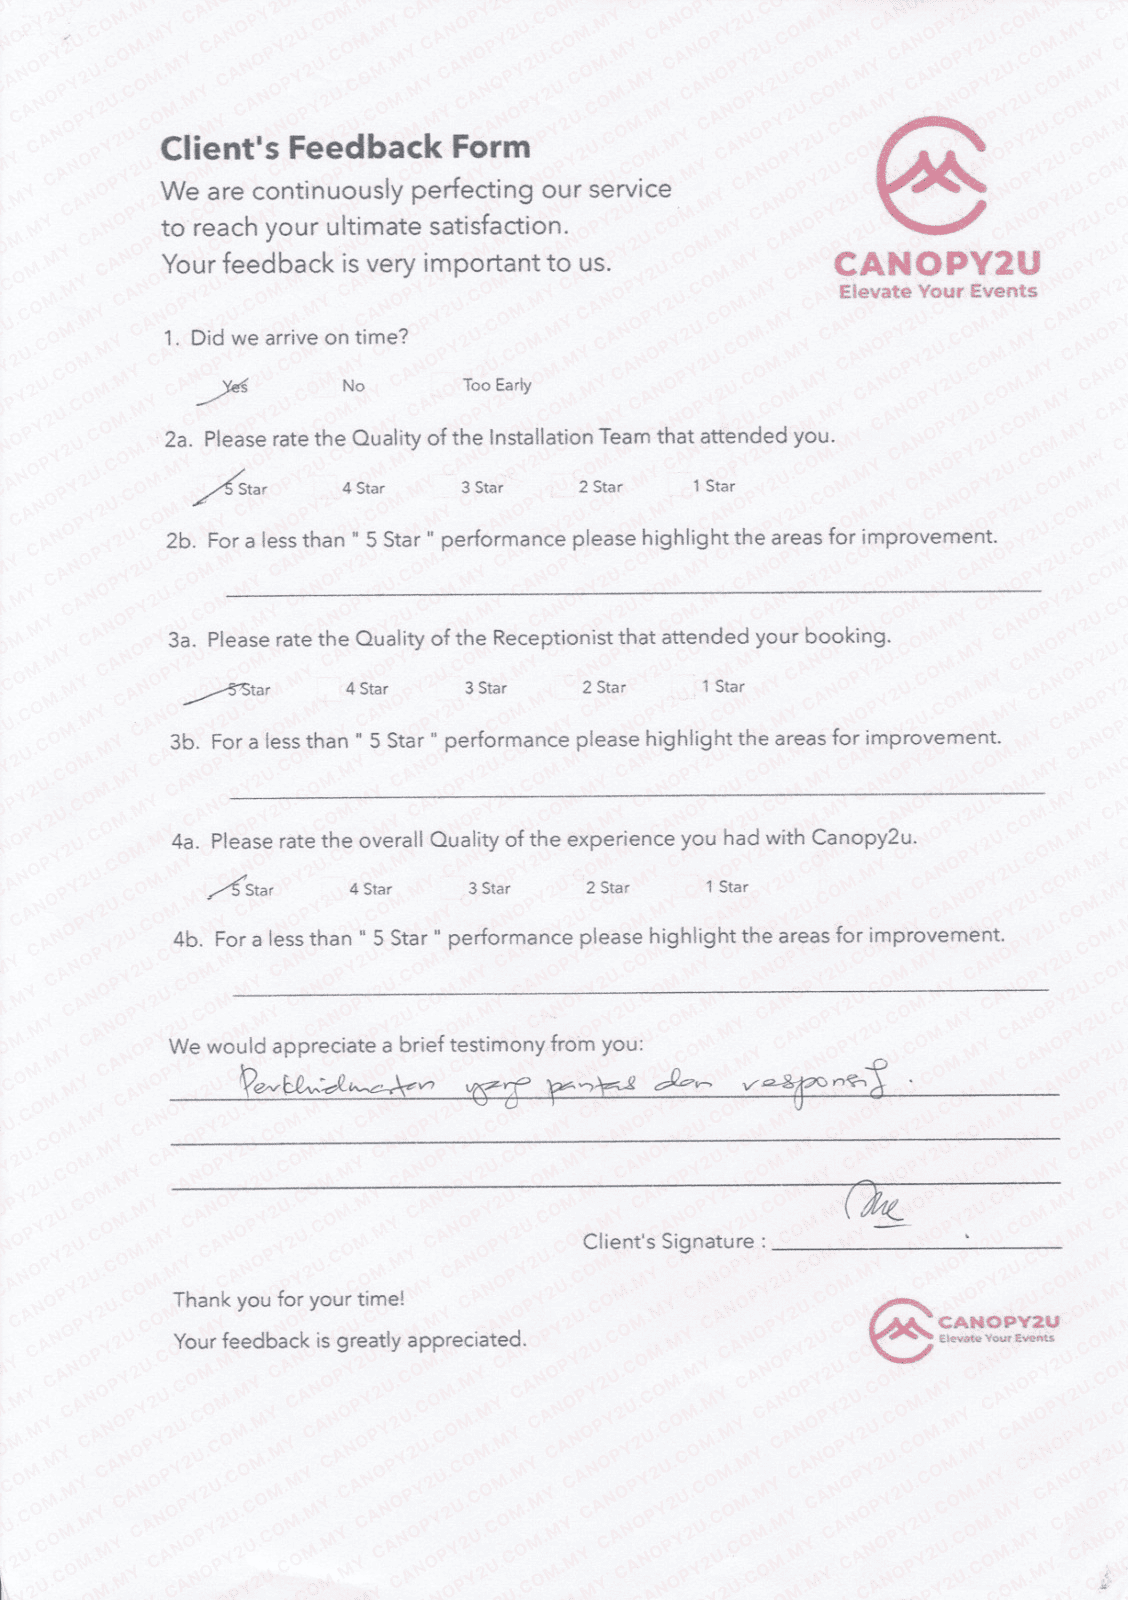 Client's Feedback Form
We are continuously perfecting our service
to reach your ultimate satisfaction.
Your feedback is very important to us.
CANOPY2U
Elevate Your Events
1. Did we arrive on time?
Yes No Too Early
2a. Please rate the Quality of the Installation Team that attended you.
5 Star 4 Star 3 Star 2 Star 1 Star
2b. For a less than " 5 Star " performance please highlight the areas for improvement.
3a. Please rate the Quality of the Receptionist that attended your booking.
5 Star 4 Star 3 Star 2 Star 1 Star
3b. For a less than " 5 Star " performance please highlight the areas for improvement.
4a. Please rate the overall Quality of the experience you had with Canopy2u.
5 Star 4 Star 3 Star 2 Star 1 Star
4b. For a less than " 5 Star " performance please highlight the areas for improvement.
We would appreciate a brief testimony from you:
Perkhidmatan yang pantas dan responsif.
Client's Signature :
Thank you for your time!
Your feedback is greatly appreciated.
CANOPY2U
Elevate Your Events